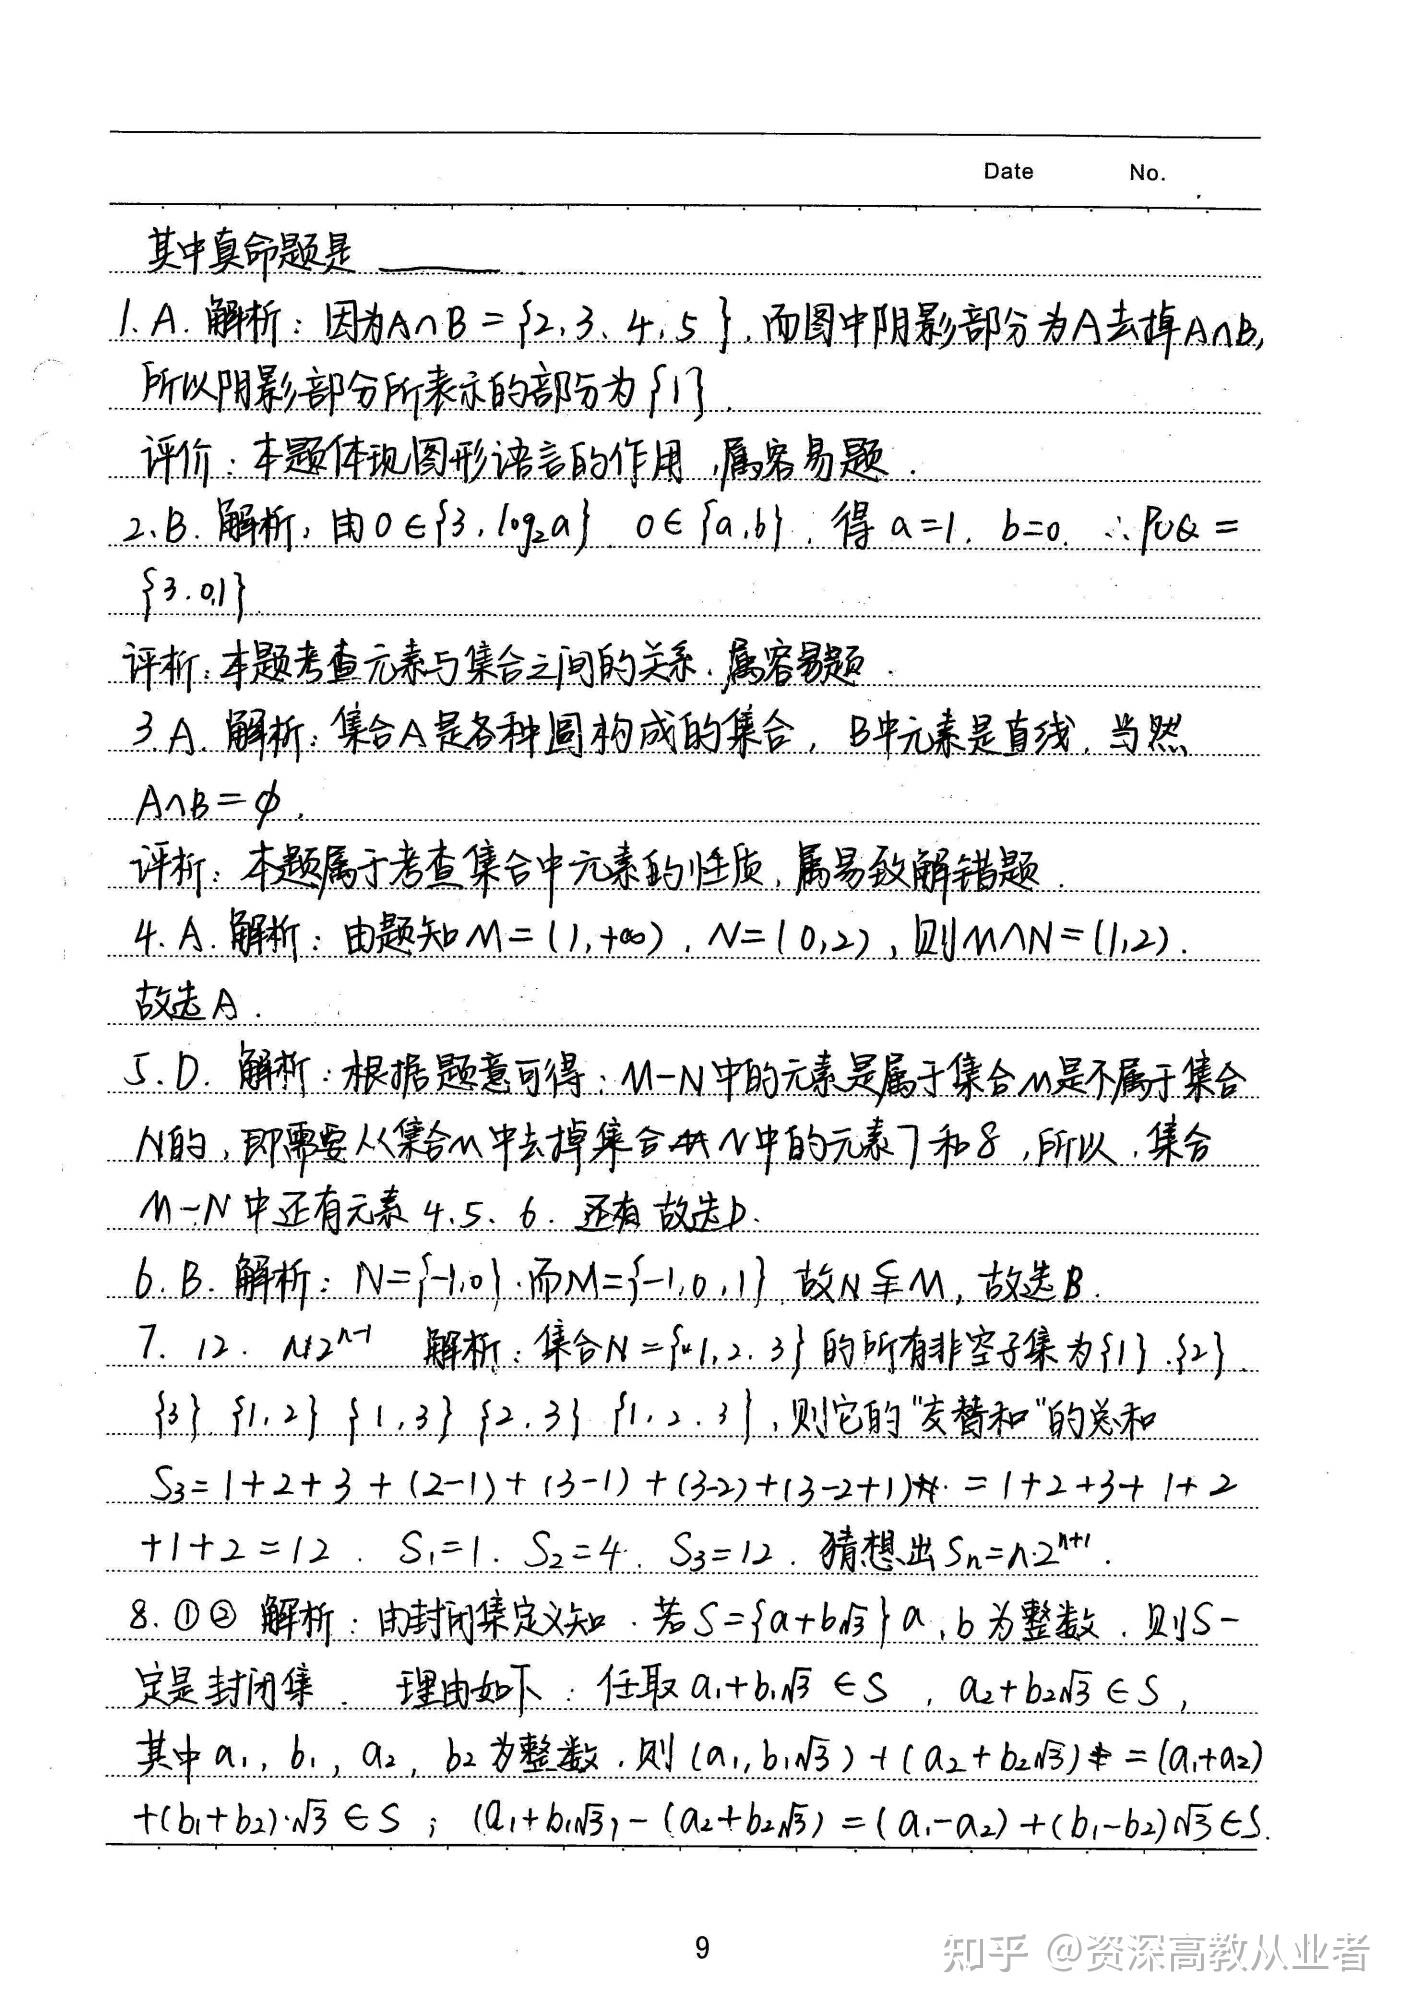 Date No.
其中真命题是 ______
1. A. 解析：因为A∩B={2,3,4,5}，而图中阴影部分为A去掉A∩B,
所以阴影部分所表示的部分为{1}.
评价：本题体现图形语言的作用，属容易题.
2. B. 解析：由0∈{3, log₂a} 0∈{a,b}，得 a=1. b=0. ∴P∪Q=
{3.0,1}
评析：本题考查元素与集合之间的关系.属容易题.
3. A. 解析：集合A是各种圆构成的集合，B中元素是直线，当然
A∩B=∅.
评析：本题属于考查集合中元素的性质，属易致解错题.
4. A. 解析：由题知M=(1,+∞), N=(0,2), 则M∩N=(1,2).
故选A.
5. D. 解析：根据题意可得：M-N中的元素是属于集合M是不属于集合
N的，即需要从集合M中去掉集合N中的元素7和8，所以，集合
M-N中还有元素4.5.6. 还有 故选D.
6. B. 解析：N={-1,0}.而M={-1,0,1} 故N⊊M，故选B.
7. 12. n·2ⁿ⁻¹ 解析：集合N={1,2.3}的所有非空子集为{1}.{2}.
{3} {1,2} {1,3} {2.3} {1.2.3}，则它的"交替和"的总和
S₃=1+2+3+(2-1)+(3-1)+(3-2)+(3-2+1) =1+2+3+1+2
+1+2=12. S₁=1. S₂=4. S₃=12. 猜想出Sn=n·2ⁿ⁺¹.
8. ①② 解析：由封闭集定义知.若S={a+b√3}a,b为整数.则S一
定是封闭集. 理由如下：任取a₁+b₁√3∈S, a₂+b₂√3∈S,
其中a₁, b₁, a₂, b₂为整数.则(a₁,b₁√3)+(a₂+b₂√3)=(a₁+a₂)
+(b₁+b₂)·√3∈S；(a₁+b₁√3)-(a₂+b₂√3)=(a₁-a₂)+(b₁-b₂)√3∈S.
9
知乎 @资深高教从业者